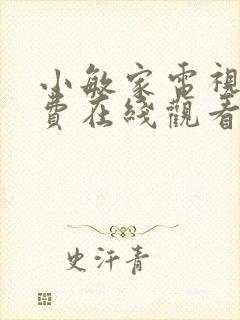 小敏家電視
費在綫觀看
史汗青